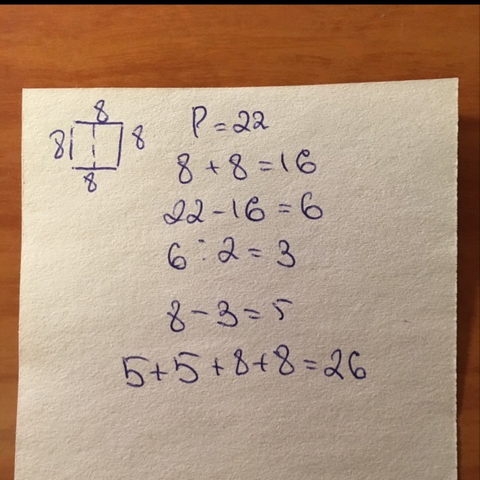 8
8 8
8
P = 22
8 + 8 = 16
22 - 16 = 6
6 : 2 = 3
8 - 3 = 5
5 + 5 + 8 + 8 = 26